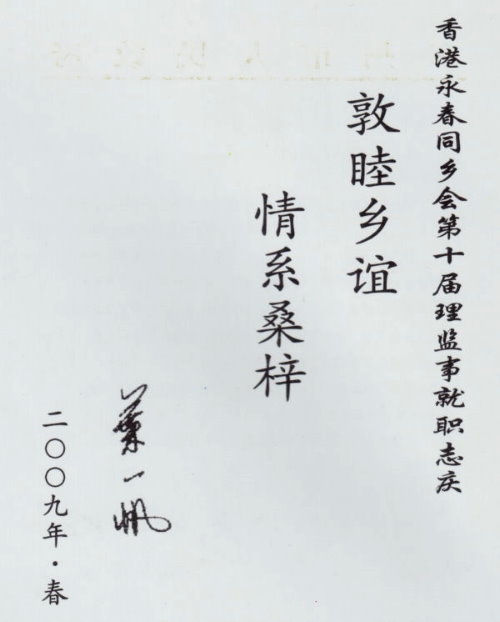 香港永春同乡会第十届理监事就职志庆
敦睦乡谊
情系桑梓
叶一帆
二〇〇九年·春